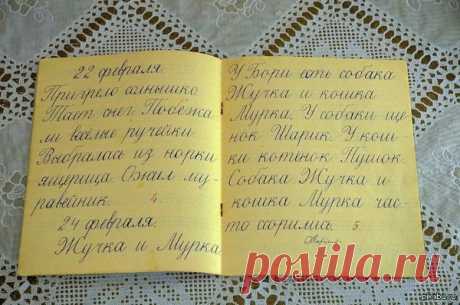 22 февраля.
Пригрело солнышко
Тает снег. Побежа-
ли весёлые ручейки
Выбралась из норки
ящерица. Ожил му-
равейник. 4
24 февраля.
Жучка и Мурка
У Бори есть собака
Жучка и кошка
Мурка. У собаки ще-
нок Шарик. У кош-
ки котёнок Пушок.
Собака Жучка и
кошка Мурка час-
то ссорились. 5.
postila.ru